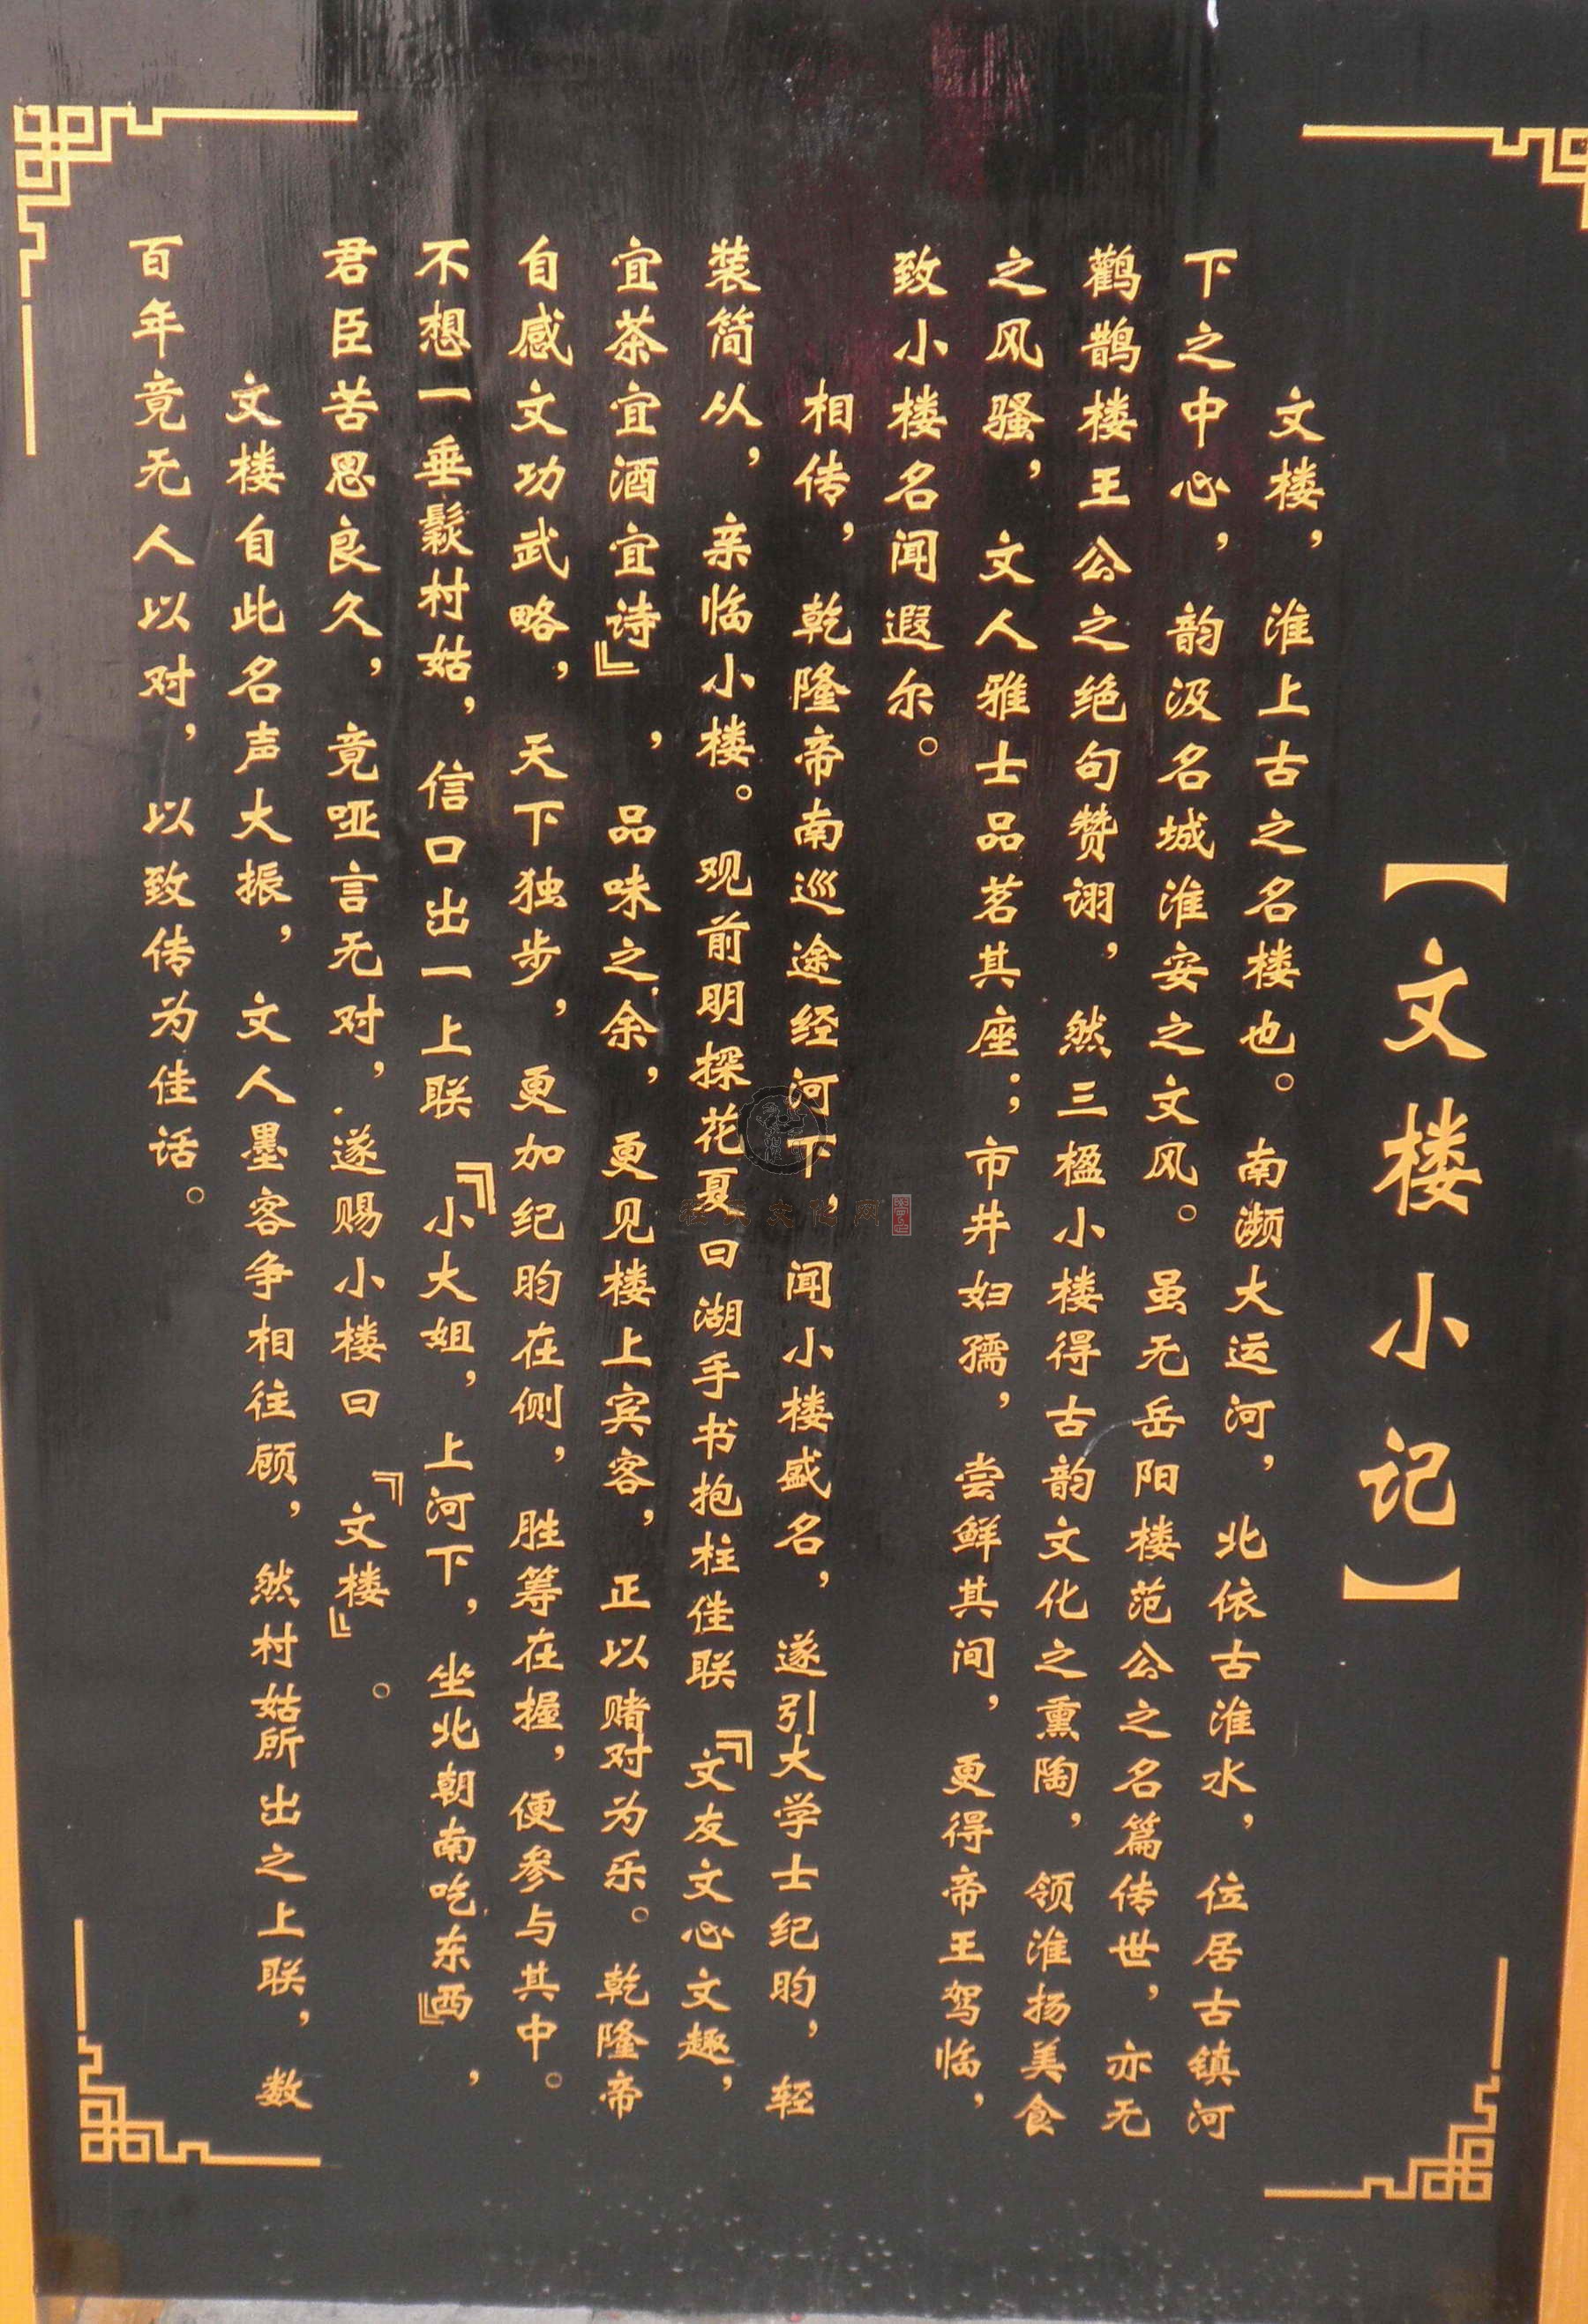 【文楼小记】
文楼，淮上古之名楼也。南濒大运河，北依古淮水，位居古镇河
下之中心，韵汲名城淮安之文风。虽无岳阳楼范公之名篇传世，亦无
鹳鹊楼王公之绝句赞诩，然三楹小楼得古韵文化之熏陶，领淮扬美食
之风骚，文人雅士品茗其座；市井妇孺，尝鲜其间，更得帝王驾临，
致小楼名闻遐尔。
相传，乾隆帝南巡途经河下，闻小楼盛名，遂引大学士纪昀，轻
装简从，亲临小楼。观前明探花夏曰湖手书抱柱佳联『文友文心文趣，
宜茶宜酒宜诗』，品味之余，更见楼上宾客，正以赌对为乐。乾隆帝
自感文功武略，天下独步，更加纪昀在侧，胜筹在握，便参与其中。
不想一垂鬏村姑，信口出一上联『小大姐，上河下，坐北朝南吃东西』，
君臣苦思良久，竟哑言无对，遂赐小楼曰『文楼』。
文楼自此名声大振，文人墨客争相往顾，然村姑所出之上联，数
百年竟无人以对，以致传为佳话。